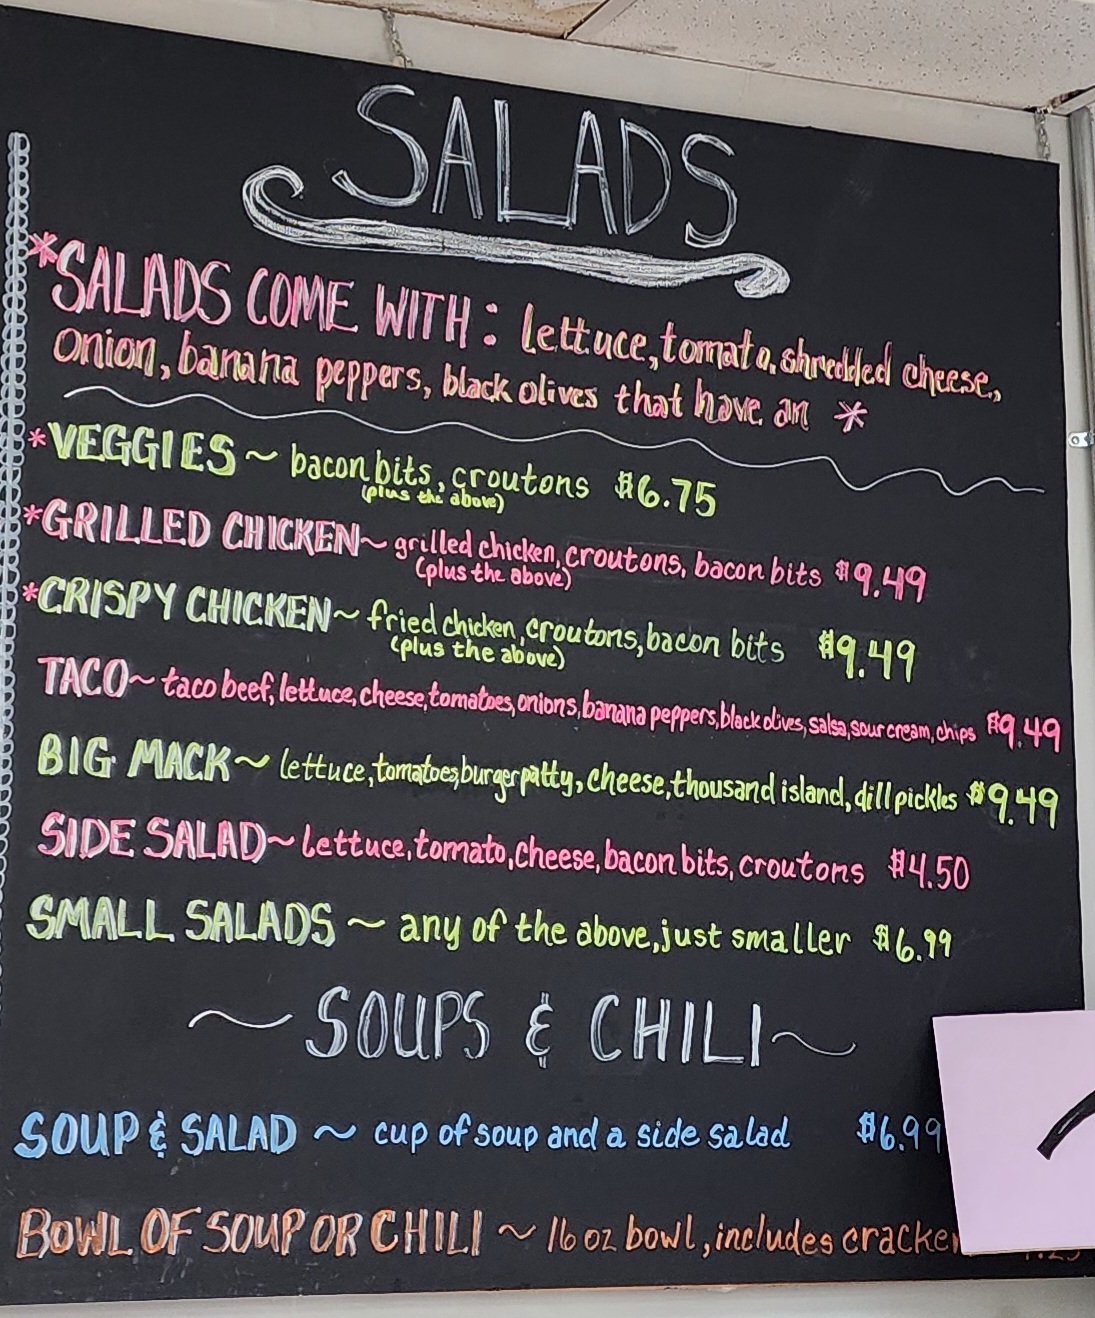 SALADS
*SALADS COME WITH: lettuce, tomato, shredded cheese,
onion, banana peppers, black olives that have an *
*VEGGIES ~ bacon bits, croutons $6.75
(plus the above)
*GRILLED CHICKEN ~ grilled chicken, croutons, bacon bits $9.49
(plus the above)
*CRISPY CHICKEN ~ fried chicken, croutons, bacon bits $9.49
(plus the above)
TACO ~ taco beef, lettuce, cheese, tomatoes, onions, banana peppers, black olives, salsa, sour cream, chips $9.49
BIG MACK ~ lettuce, tomatoes, burger patty, cheese, thousand island, dill pickles $9.49
SIDE SALAD ~ lettuce, tomato, cheese, bacon bits, croutons $4.50
SMALL SALADS ~ any of the above, just smaller $6.99
~ SOUPS & CHILI ~
SOUP & SALAD ~ cup of soup and a side salad $6.99
BOWL OF SOUP OR CHILI ~ 16 oz bowl, includes